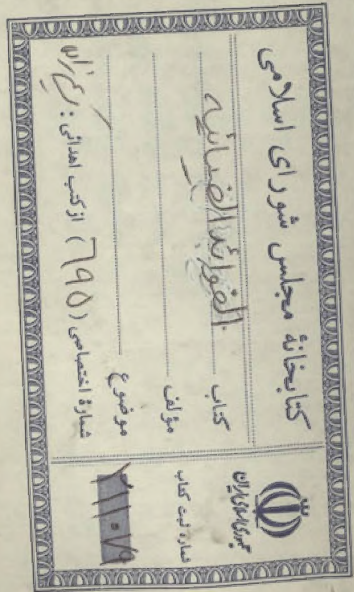 کتابخانهٔ مجلس شورای اسلامی
کتاب الفوائد الضیائیه
مؤلف
موضوع
شمارهٔ اختصاصی (۶۹۵) از کتب اهدائی:
جمهوری اسلامی ایران
شماره ثبت کتاب